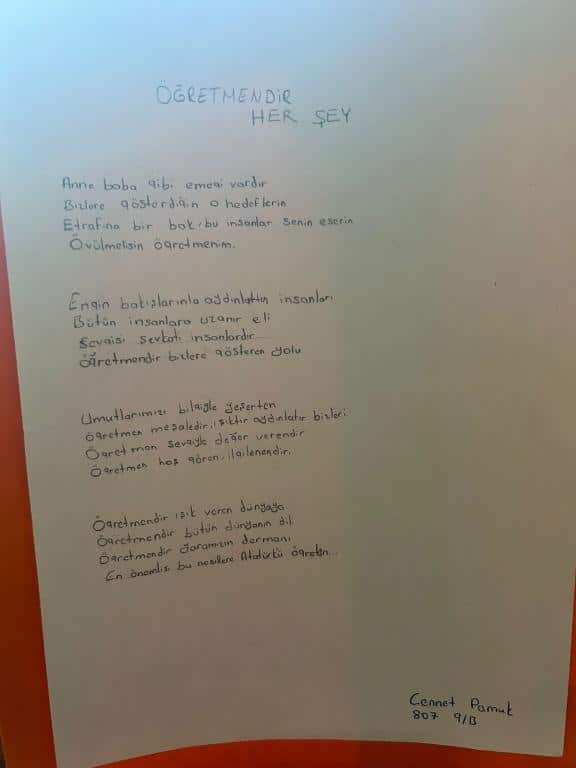 ÖĞRETMENDİR
HER ŞEY
Anne baba gibi emegi vardır
Bizlere gösterdiğin o hedeflerin
Etrafına bir bak, bu insanlar senin eserin
Övülmelisin öğretmenim.
Engin bakışlarınla aydınlattın insanları
Bütün insanlara uzanır eli
Sevgisi şevkati insanlardır
Öğretmendir bizlere gösteren yolu
Umutlarımızı bilgiyle yeşerten
Öğretmen meşaledir, ışıktır aydınlatır bizleri
Öğretmen sevgiyle değer verendir
Öğretmen hoş gören, ilgilenendir.
Öğretmendir ışık veren dünyaya
Öğretmendir bütün dünyanın dili
Öğretmendir yaramızın dermanı
En önemlisi bu nesillere Atatürkü öğreten...
Cennet Pamuk
807 9/B